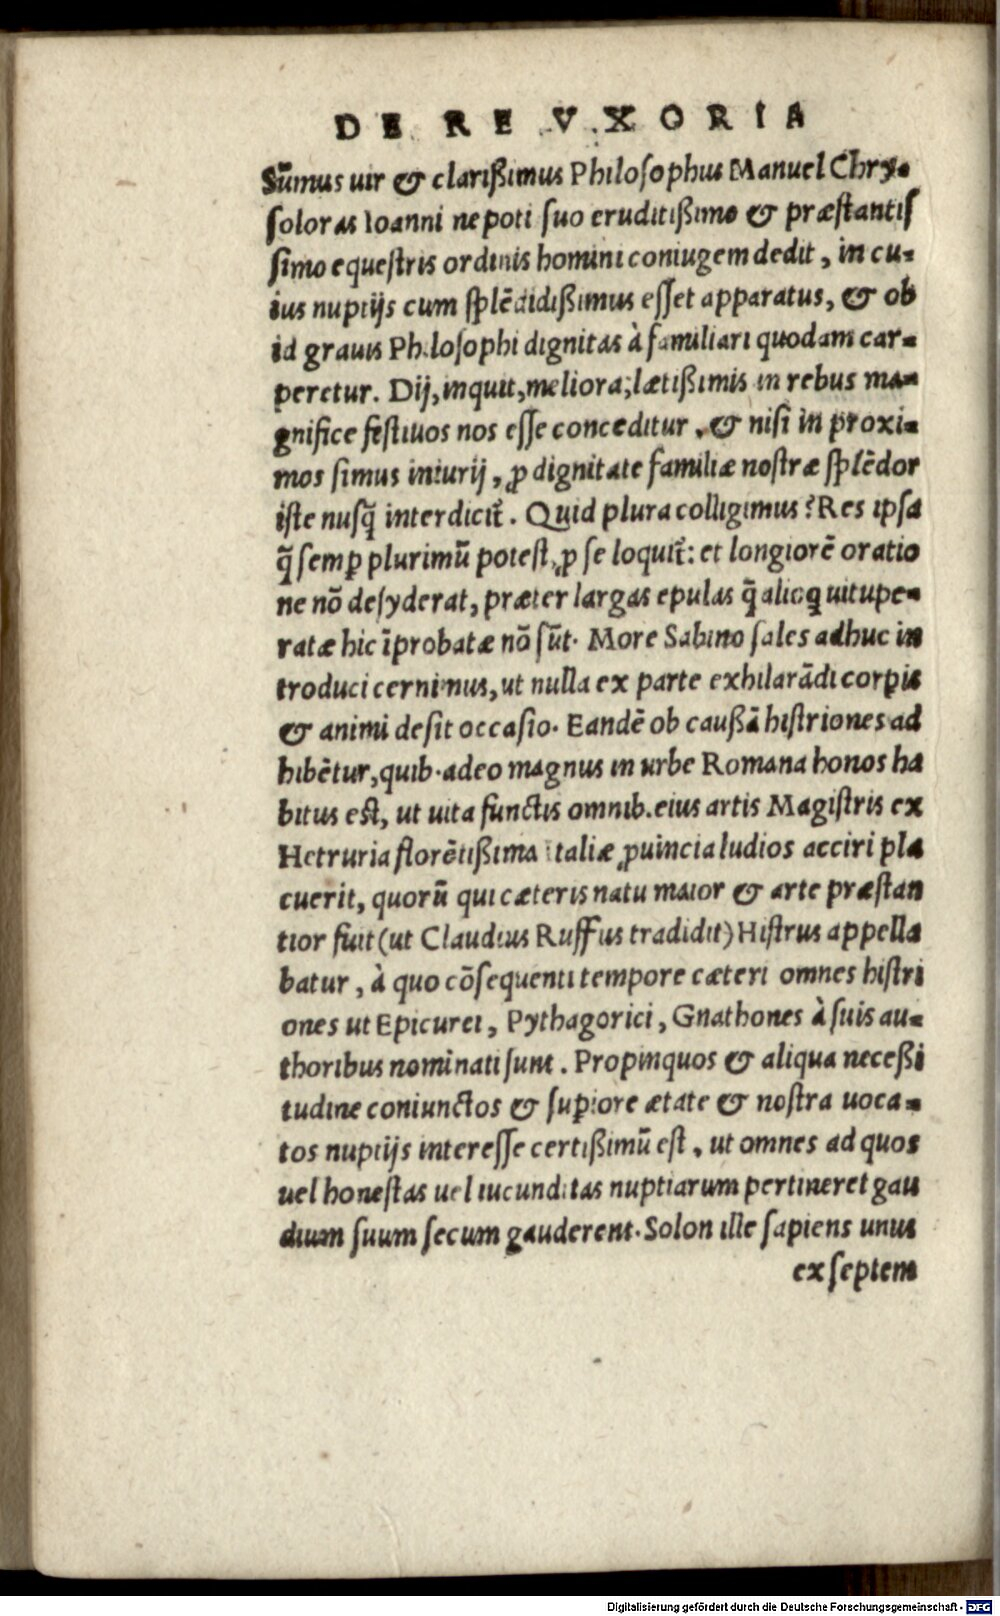 DE RE VXORIA
Sūmus uir & clarißimus Philosophus Manuel Chry-
soloras Ioanni nepoti suo eruditißimo & præstantis
simo equestris ordinis homini coniugem dedit, in cu-
ius nuptijs cum splēdidißimus esset apparatus, & ob
id grauis Philosophi dignitas à familiari quodam car-
peretur. Dij, inquit, meliora; lætißimis in rebus ma-
gnifice festiuos nos esse conceditur, & nisi in proxi-
mos simus iniurij, ꝓ dignitate familiæ nostræ splēdor
iste nusq̄ interdicit̃. Quid plura colligimus? Res ipsa
q̄ semꝑ plurimū potest, ꝓ se loquit̃: et longiorē oratio
ne nō desyderat, præter largas epulas q̄ alioq uitupe-
ratæ hic īprobatæ nō sūt. More Sabino sales adhuc in
troduci cernimus, ut nulla ex parte exhilarādi corꝑis
& animi desit occasio. Eandē ob caußā histriones ad
hibētur, quib. adeo magnus in urbe Romana honos ha
bitus est, ut uita functis omnib. eius artis Magistris ex
Hetruria florētißima Italiæ ꝓuincia ludios acciri pla
cuerit, quorū qui cæteris natu maior & arte præstan
tior fuit (ut Claudius Ruffus tradidit) Histrus appella
batur, à quo cōsequenti tempore cæteri omnes histri
ones ut Epicurei, Pythagorici, Gnathones à suis au-
thoribus nominati sunt. Propinquos & aliqua neceßi
tudine coniunctos & suꝑiore ætate & nostra uoca-
tos nuptijs interesse certißimū est, ut omnes ad quos
uel honestas uel iucunditas nuptiarum pertineret gau
dium suum secum gauderent. Solon ille sapiens unus
ex septem
Digitalisierung gefördert durch die Deutsche Forschungsgemeinschaft - DFG